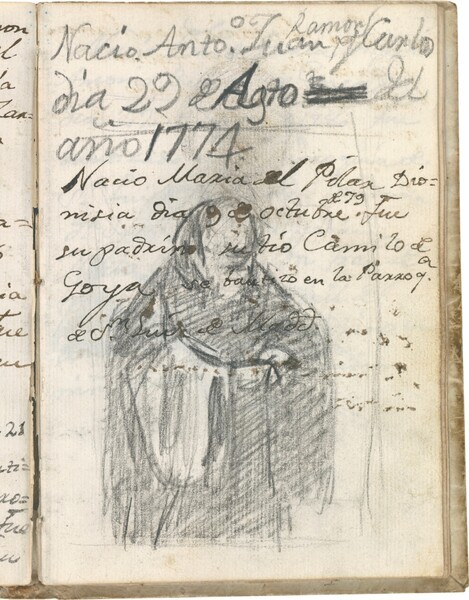 Nacio Anto.º Juan Ramon y Carlos
dia 29 de Agto del
año 1774
Nacio Maria del Pilar Dio=
nisia dia 9 de octubre de 79. Fue
su padrino su tio Camilo de
Goya se bautizo en la Parroq.ª
de S.n Luis de Madd.